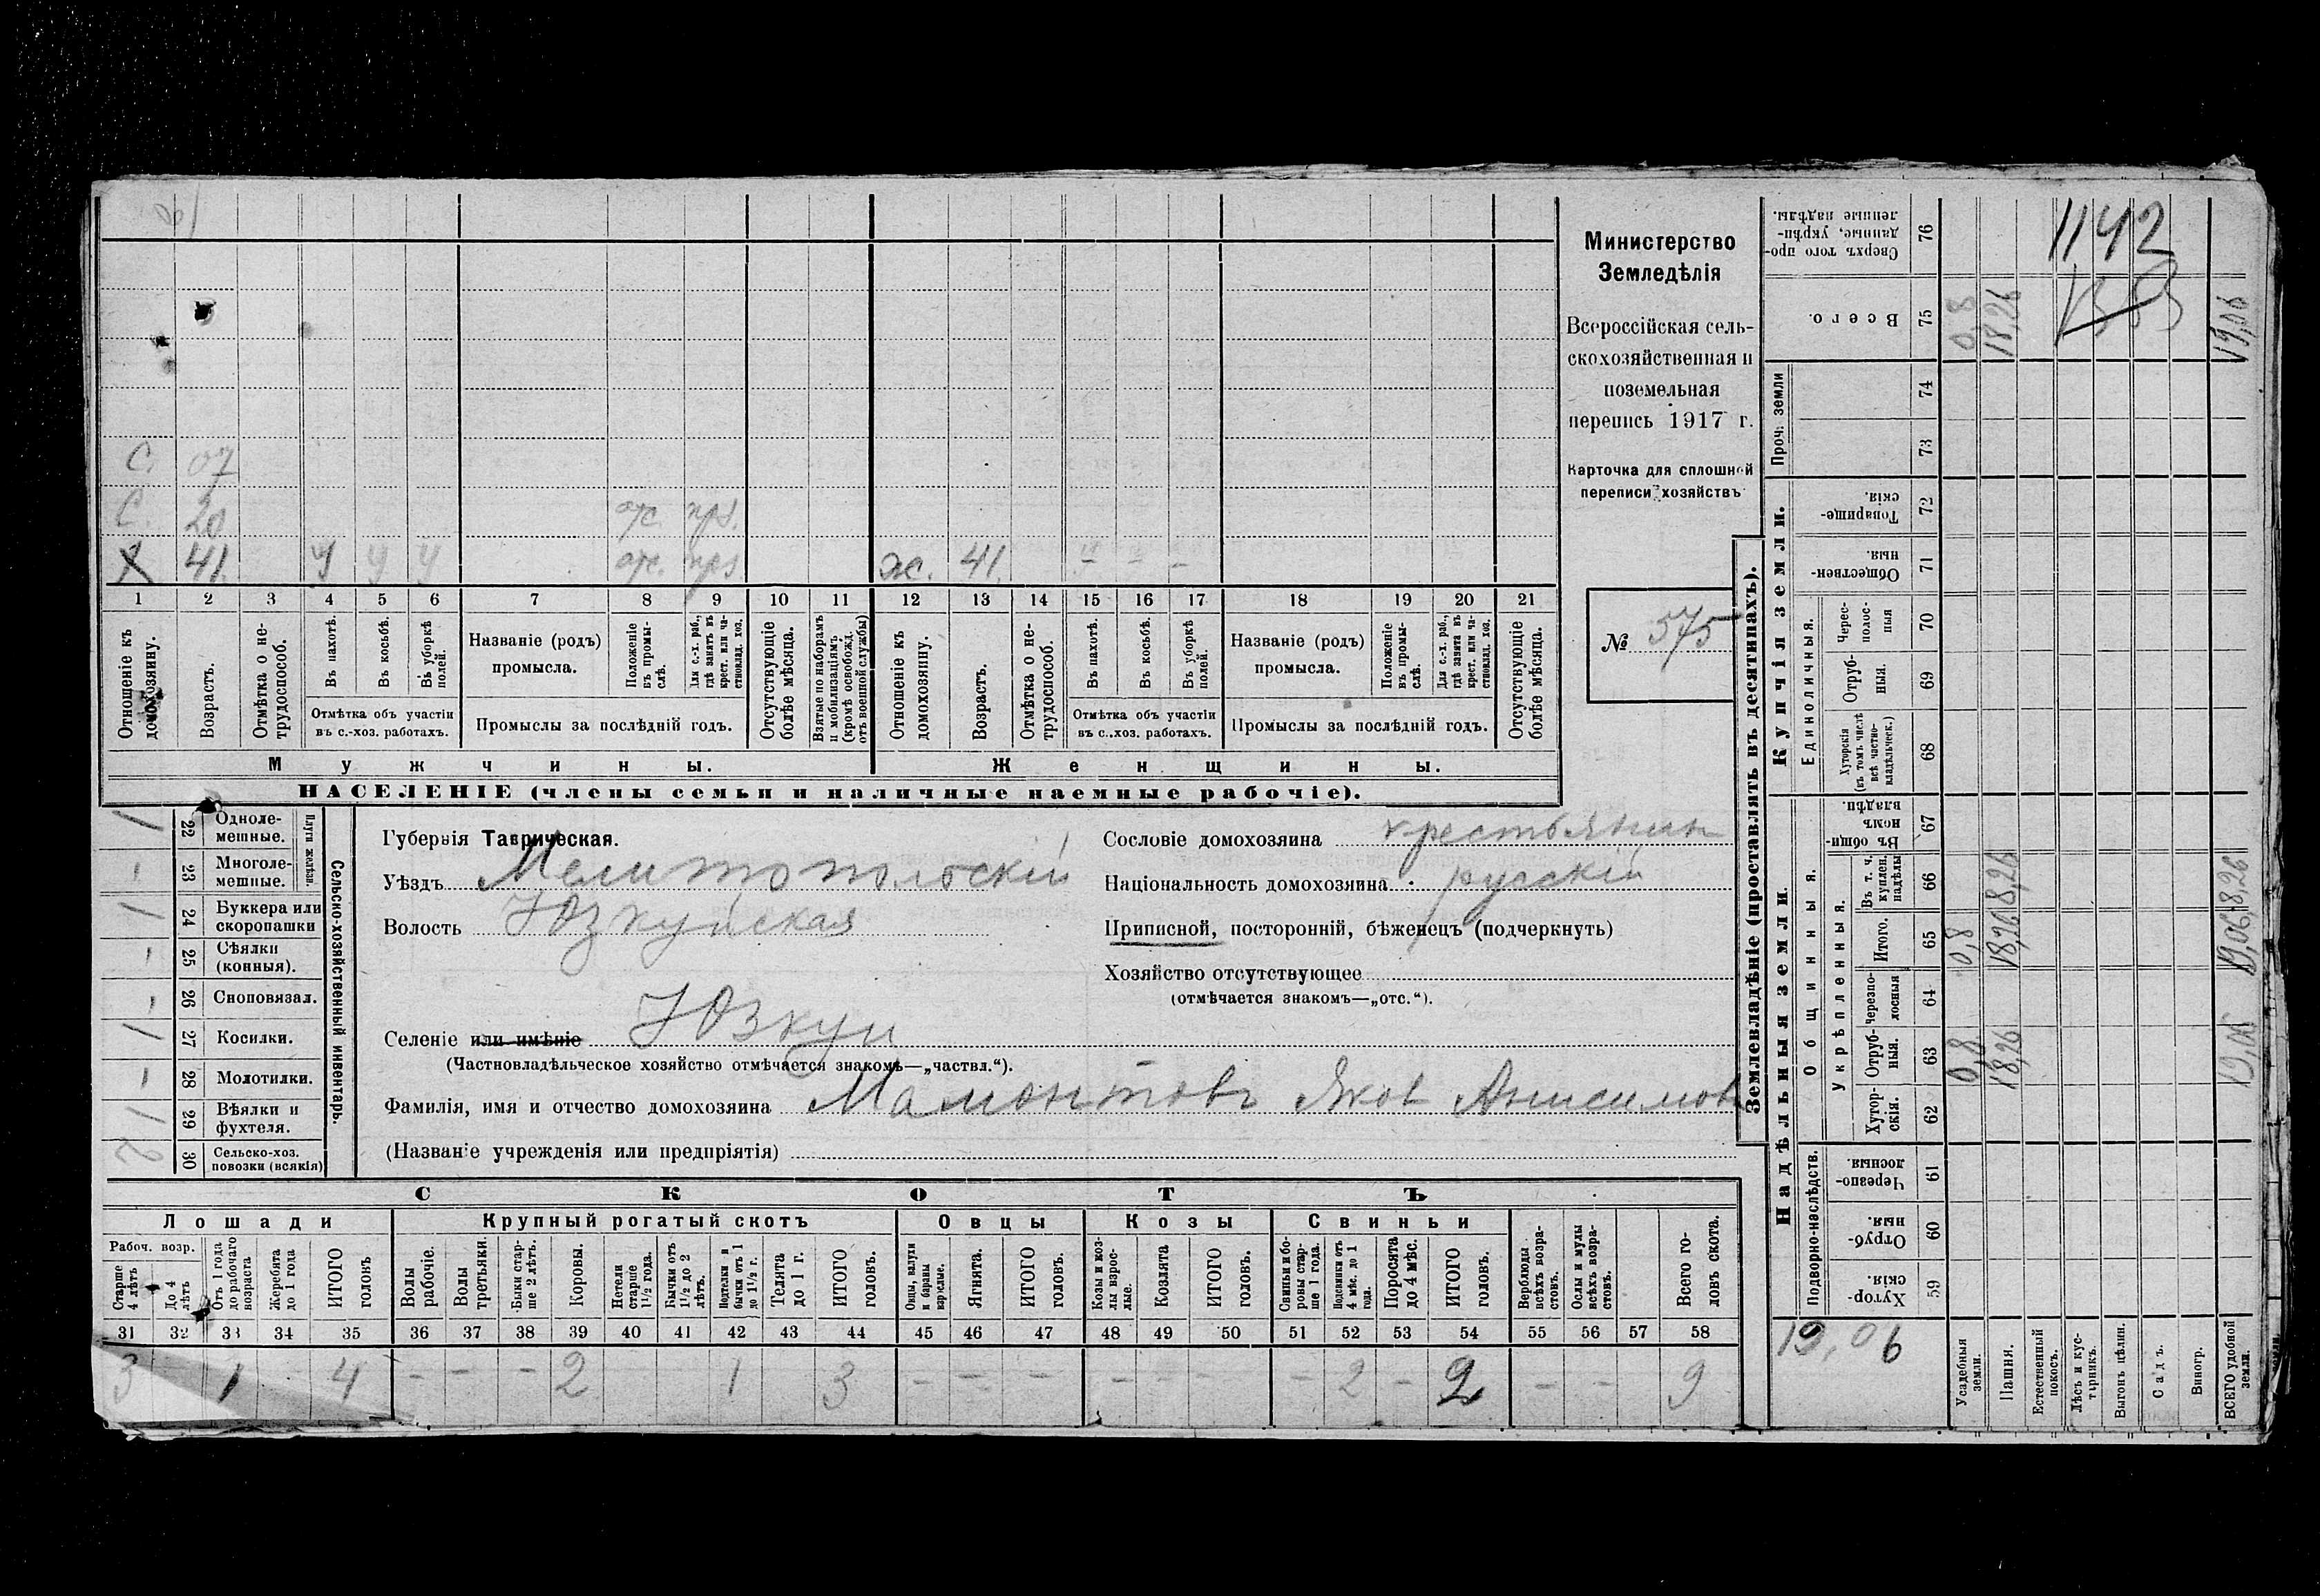 Министерство
Земледѣлія
Всероссійская сель-
скохозяйственная и
поземельная
перепись 1917 г.
Карточка для сплошной
переписи хозяйствъ
№ 575
С. 07
С. 20 отс. нрз.
Х 41 У У У ж. 41 " - -
1 2 3 4 5 6 7 8 9 10 11 12 13 14 15 16 17 18 19 20 21
Отношеніе къ домохозяину.
Возрастъ.
Отмѣтка о не-трудоспособ.
Въ пахотѣ.
Въ косьбѣ.
Въ уборкѣ полей.
Отмѣтка объ участіи
въ с.-хоз. работахъ.
Названіе (родъ)
промысла.
Положеніе въ промы-слѣ.
Для с.-х. раб., гдѣ занятъ въ крест. или ча-стновлад. хоз.
Промыслы за послѣдній годъ.
Отсутствующіе болѣе мѣсяца.
Взятые по наборамъ и мобилизаціямъ (кромѣ освобожд. отъ военной службы)
Отношеніе къ домохозяину.
Возрастъ.
Отмѣтка о не-трудоспособ.
Въ пахотѣ.
Въ косьбѣ.
Въ уборкѣ полей.
Отмѣтка объ участіи
въ с.-хоз. работахъ.
Названіе (родъ)
промысла.
Положеніе въ промы-слѣ.
Для с.-х. раб., гдѣ занята въ крест. или ча-стновлад. хоз.
Промыслы за послѣдній годъ.
Отсутствующіе болѣе мѣсяца.
Мужчины. Женщины.
НАСЕЛЕНІЕ (члены семьи и наличные наемные рабочіе).
Сельско-хозяйственный инвентарь.
Плуги желѣзн.
1 22 Однолемешные.
- 23 Многолемешные.
1 24 Буккера или скоропашки
- 25 Сѣялки (конныя).
- 26 Сноповязал.
1 27 Косилки.
- 28 Молотилки.
1 29 Вѣялки и фухтеля.
2 30 Сельско-хоз. повозки (всякія)
Губернія Таврическая.
Уѣздъ Мелитопольскій
Волость Юзкуйская
Селеніе или имѣніе Юзкуи
(Частновладѣльческое хозяйство отмѣчается знакомъ—„частвл.“).
Фамилія, имя и отчество домохозяина Мамонтовъ Яков Анисимов
(Названіе учрежденія или предпріятія)
Сословіе домохозяина крестьянин
Національность домохозяина русскій
Приписной, посторонній, бѣженецъ (подчеркнуть)
Хозяйство отсутствующее
(отмѣчается знакомъ—„отс.“).
СКОТЪ
Лошади Крупный рогатый скотъ Овцы Козы Свиньи
Рабоч. возр.
Старше 4 лѣтъ
До 4 лѣтъ
Отъ 1 года до рабочаго возраста
Жеребята до 1 года
ИТОГО головъ
Волы рабочіе.
Волы третьяки.
Быки стар-ше 2 лѣтъ.
Коровы.
Нетели старше 1½ года.
Бычки отъ 1½ до 2 лѣтъ.
Подтелки и бычки отъ 1 до 1½ г.
Телята до 1 г.
ИТОГО головъ.
Овцы, валухи и бараны взрослые.
Ягнята.
ИТОГО головъ.
Козы и коз-лы взрос-лые.
Козлята
ИТОГО головъ.
Свиньи и бо-ровы стар-ше 1 года.
Подсвинки отъ 4 мѣс. до 1 года.
Поросята до 4 мѣс.
ИТОГО головъ.
Верблюды всѣхъ возра-стовъ.
Ослы и мулы всѣхъ возра-стовъ.
Всего го-ловъ скота.
31 32 33 34 35 36 37 38 39 40 41 42 43 44 45 46 47 48 49 50 51 52 53 54 55 56 57 58
3 1 - 4 - - - 2 1 3 - - - - - - - 2 - 2 - - 9
Землевладѣніе (проставлять въ десятинахъ).
Надѣльныя земли. Купчія земли.
Подворно-наслѣдств.
Общинныя.
Укрѣпленныя.
Единоличныя.
Проч. земли
59 Хутор-скія.
60 Отруб-ныя.
61 Черезпо-лосныя.
62 Хутор-скія.
63 Отруб-ныя.
64 Черезпо-лосныя
65 Итого.
66 Въ т. ч. куплен. надѣлы
67 Въ общин-номъ владѣн.
68 Хуторскія (въ томъ числѣ всѣ частно-владѣльческ.)
69 Отруб-ныя.
70 Черес-полос-ныя
71 Обществен-ныя.
72 Товарище-скія.
73
74
75 Всего.
76 Сверхъ того про-данные, укрѣп-ленные надѣлы.
19,06
Усадебныя земли. 0,8 0,8 0,8
Пашня. 18,26 18,26 18,26 18,26
Естественный покосъ.
Лѣсъ и кус-тарникъ.
Выгонъ цѣлин.
Садъ.
Виногр.
ВСЕГО удобной земли. 19,06 19,06 18,26 19,06
1142